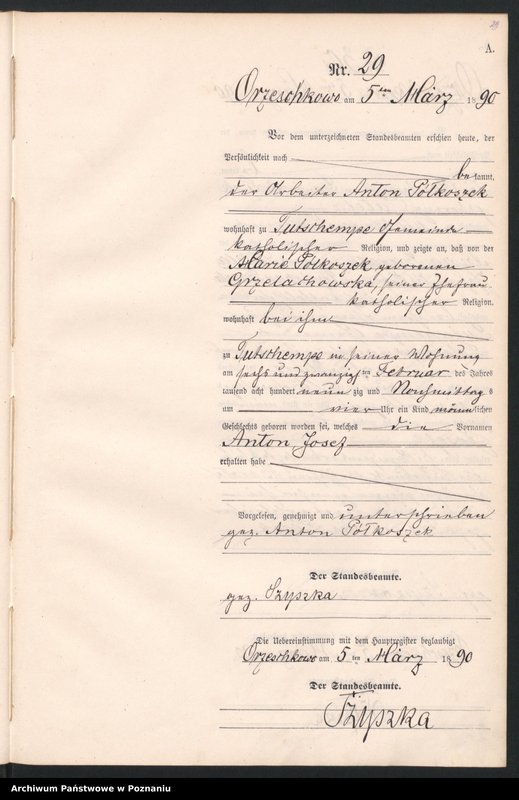 29
A.
Nr. 29
Orzeschkowo am 5ten März 1890
Vor dem unterzeichneten Standesbeamten erschien heute, der
Persönlichkeit nach
bekannt,
der Arbeiter Anton Półkoszek
wohnhaft zu Tutschempe Gemeinde
katholischer Religion, und zeigte an, daß von der
Marie Półkoszek, geborenen
Grzelachowska, seiner Ehefrau
katholischer Religion.
wohnhaft bei ihm
zu Tutschempe in seiner Wohnung
am sechs und zwanzigsten Februar des Jahres
tausend acht hundert neunzig und Nachmittags
um vier Uhr ein Kind männlichen
Geschlechts geboren worden sei, welches die Vornamen
Anton, Josef
erhalten habe
Vorgelesen, genehmigt und unterschrieben
gez. Anton Półkoszek
Der Standesbeamte.
gez. Szyszka
Die Uebereinstimmung mit dem Hauptregister beglaubigt
Orzeschkowo am 5ten März 1890
Der Standesbeamte.
Szyszka
Archiwum Państwowe w Poznaniu